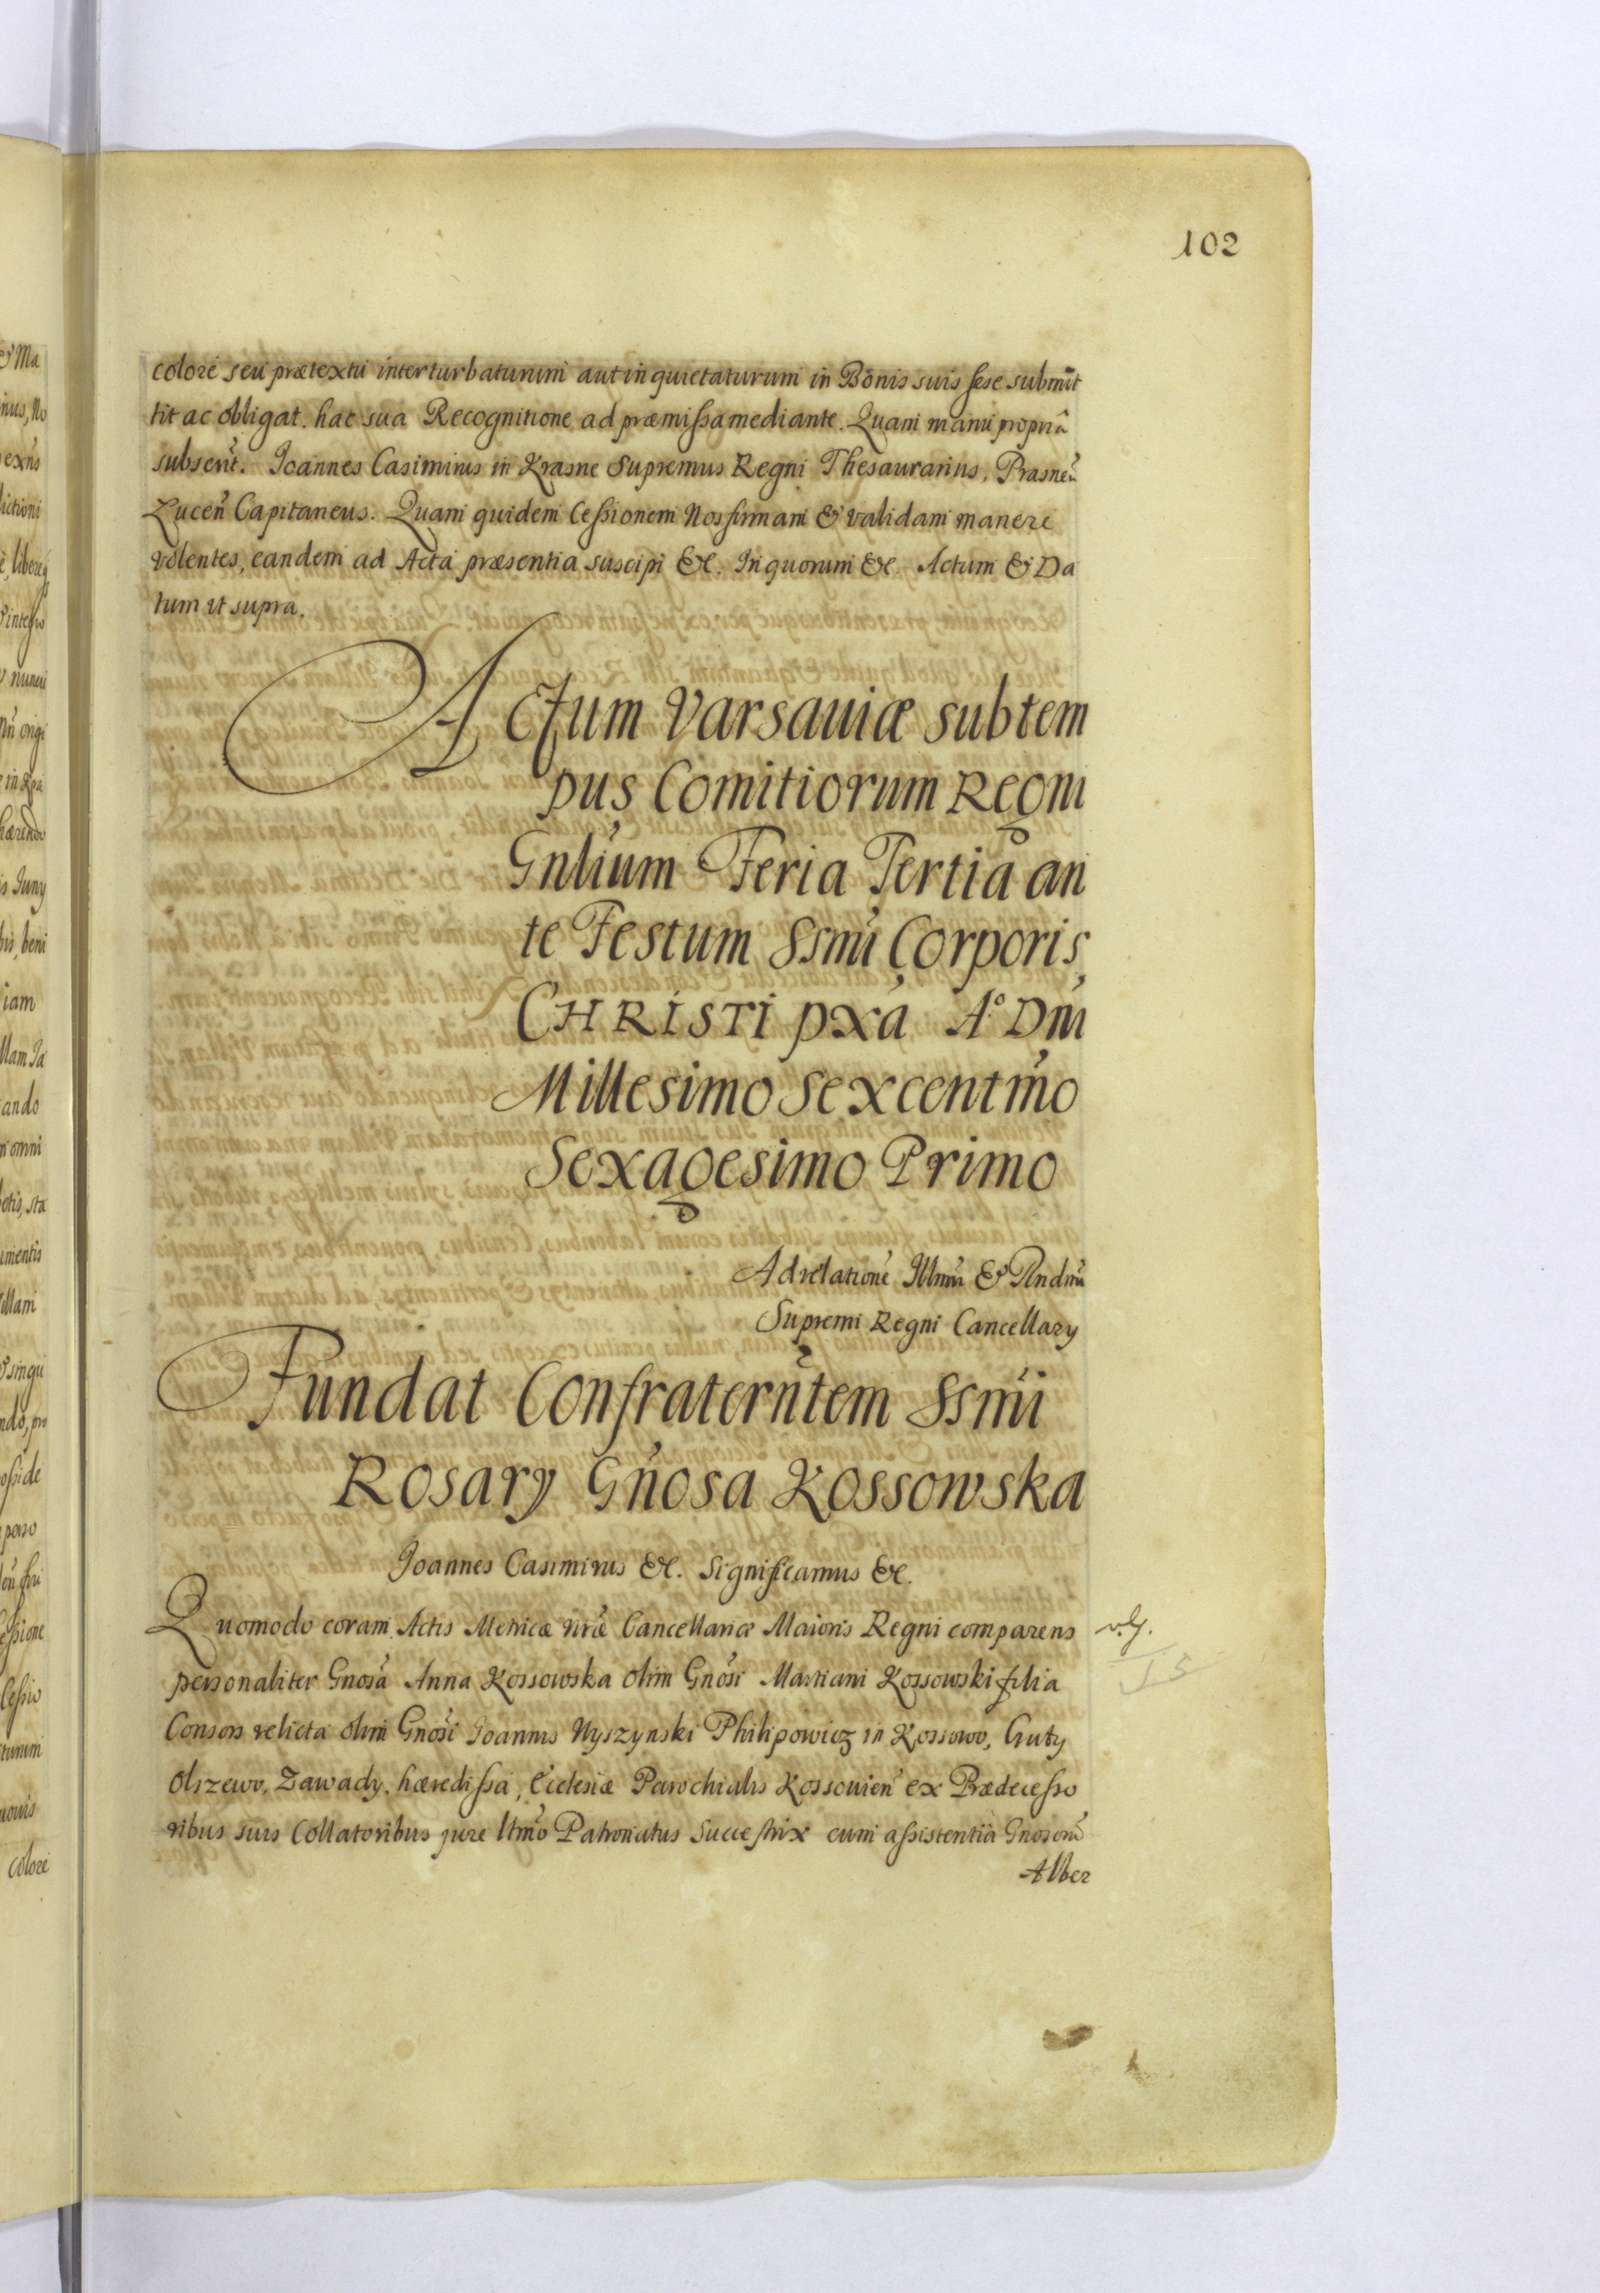 102
colore seu prætextu interturbaturum aut inquietaturum in Bonis suis sese submit
tit ac obligat. hac sua Recognitione ad præmissa mediante. Quam manu propriâ
subscrit. Joannes Casimirus in Krasne Supremus Regni Thesaurarius, Prasneń
Luceń Capitaneus. Quam quidem Cessionem Nos firmam & validam manere
volentes, eandem ad Acta præsentia suscipi &c. In quorum &c Actum & Da
tum ut supra.
Actum Varsaviæ sub tem
pus Comitiorum Regni
Gnlium Feria Tertia an
te Festum Ssmi Corporis
CHRISTI pxa Aº Dni
Millesimo Sexcentmo
Sexagesimo Primo
Ad relatione Illmi & Rndmi
Supremi Regni Cancellary
Fundat Confraterntem Ssmi
Rosary Gnosa Kossowska
Joannes Casimirus &c. Significamus &c.
Quomodo coram Actis Metricæ nræ Cancellariæ Maioris Regni comparens
personaliter Gnosa Anna Kossowska olim Gnosi Martiani Kossowski filia
Consors relicta olim Gnosi Joannis Nyszynski Philipowicz in Kossowo, Guty
Olszewo, Zawady, hæredissa, Ecclesiæ Parochialis Kossouien ex Prædecesso
ribus suis Collatoribus jure ltmo Patronatus Successtrix cum assistentia Gnosorum
Alber